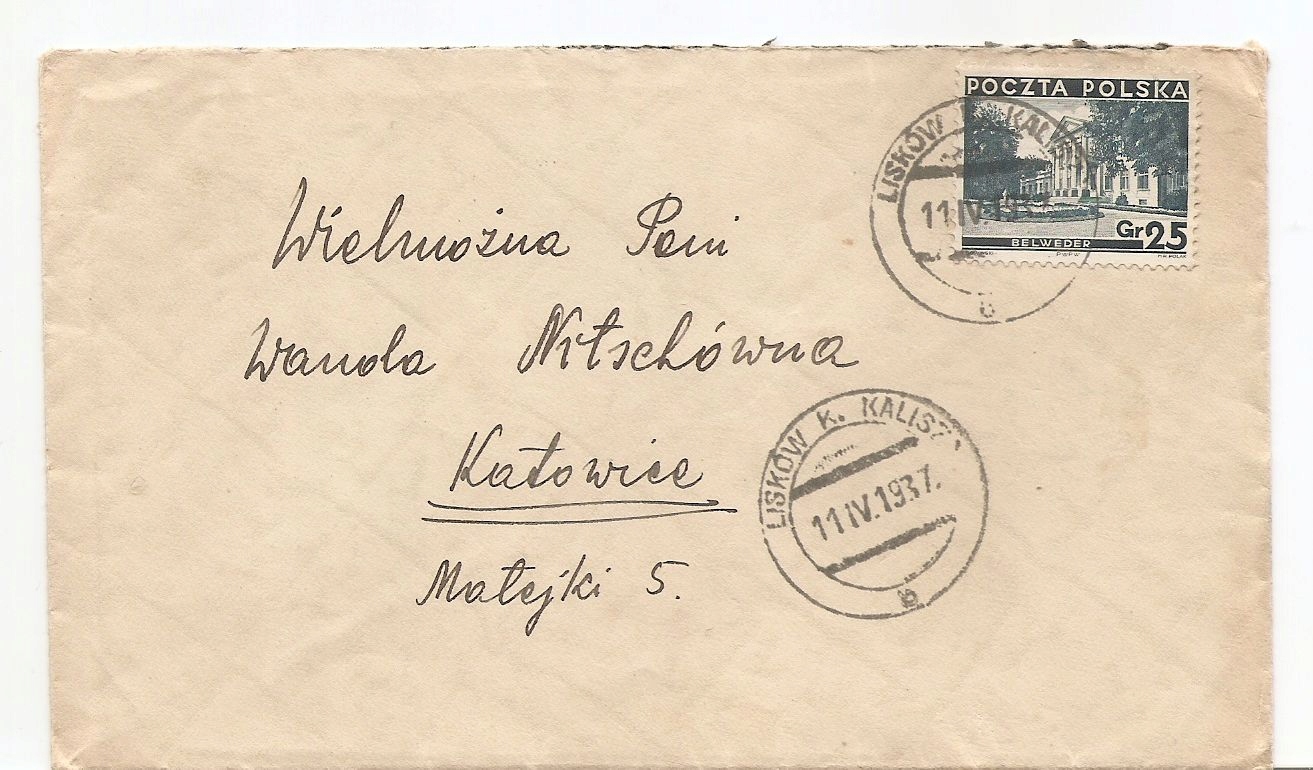 POCZTA POLSKA
Gr 25
BELWEDER
PWPW
LISKÓW K. KALISZA
11 IV.1937
b
Wielmożna Pani
Wanda Nitschówna
Katowice
Matejki 5.
LISKÓW K. KALISZA
11 IV.1937.
b